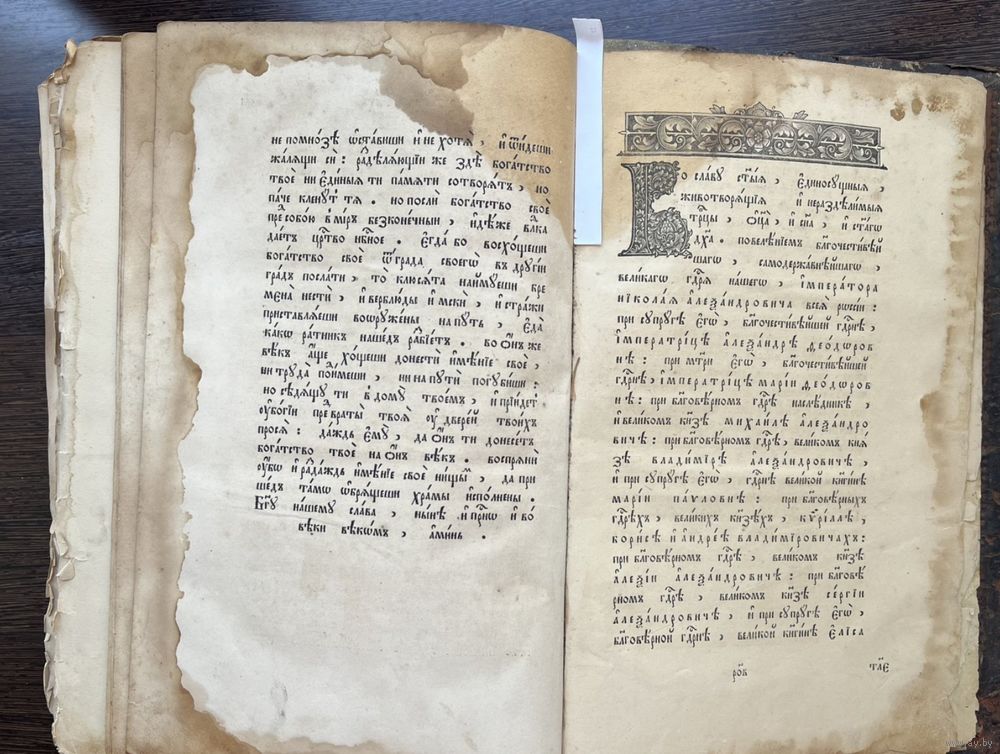 не помно́зѣ ѡ҆ста́виши и҆ не хотѧ̀, и҆ ѿи́деши
жа́лѧѧи си: раздѣлѧ́ющїи же здѣ̀ бога́тство
твоѐ ни є҆ди́ныѧ ти па́мѧти сотворѧ́тъ, но
па́че клену́тъ тѧ̀. но послѝ бога́тство своѐ
пре́д собою в̾ мі́ръ безконе́чныи, и҆дѣ́же влⷣка
дае́тъ црⷭ҇тво нбⷭ҇ное. є҆гда́ бо восхо́щеши
бога́тство своѐ ѿ гра́да своегѡ̀ въ дрꙋгі́и
гра́дъ посла́ти, то̀ клюсѧ́та найму́еши бре
мена̀ нестѝ, и҆ вербл́юды и҆ мскѝ, и҆ стра́жи
приставлѧ́еши воѡрꙋже́ны на пꙋ́ть, є҆да̀
ка́кѡ ра́тникъ наше́дъ разбїе́тъ. во ѻ҆́нъ же
вѣ́къ а҆́ще хо́щеши донестѝ и҆мѣ́нїе своѐ,
ни трꙋда̀ по́ймеши, ни на пꙋтѝ погꙋби́ши:
но сѣдѧ́щꙋ ти в̾ домꙋ̀ твое́мъ, и҆ прїи́детъ
ᲂу҆бо́гїи пре́д врата̀ твоѧ̀ ᲂу҆ двере́й твои́хъ
просѧ̀: да́ждь є҆мꙋ̀, да ѻ҆́нъ ти донесе́тъ
бога́тство твоѐ на ѻ҆́нъ вѣ́къ. воспрѧнѝ
ᲂу҆̀бѡ и҆ разда́ждь и҆мѣ́нїе своѐ ни́щымъ, да при
ше́дъ та́мѡ ѡ҆брѧ́щеши хра́мы и҆спо́лнены.
Бг҃ꙋ на́шемꙋ сла́ва, ны́нѣ и҆ при́снѡ и҆ во́
вѣки вѣкѡ́мъ, а҆ми́нь.
Во сла́вꙋ ст҃ы́ѧ, є҆диносꙋ́щныѧ,
животворѧ́щїѧ и҆ нераздѣли́мыѧ
трⷪ҇цы, ѻ҆ц҃а̀, и҆ сн҃а, и҆ ст҃а́гѡ
дх҃а. повелѣ́нїемъ бл҃гочести́вѣй
шагѡ, самодержа́внѣйшагѡ,
вели́кагѡ гдⷭ҇рѧ на́шегѡ, і҆мпера́тора
ніко́лаѧ а҆леѯа́ндровича всеѧ̀ рѡссі́и:
при сꙋпрꙋ́гѣ є҆гѡ̀, бл҃гочести́вѣйшей гдⷭ҇рнѣ,
і҆мператрі́цѣ а҆леѯа́ндрѣ ѳео́дѡров
нѣ: при мт҃ри є҆гѡ̀, бл҃гочести́вѣйшей
гдⷭ҇рнѣ, і҆мператрі́цѣ марі́и ѳео́дѡров
нѣ: при бл҃говѣ́рномъ гдⷭ҇рѣ наслѣ́дникѣ,
и҆ вели́комъ кн҃зѣ михаи́лѣ а҆леѯа́ндро
вичѣ: при бл҃говѣ́рномъ гдⷭ҇рѣ, вели́комъ кнѧ́
зѣ влади́мірѣ а҆леѯа́ндровичѣ,
и҆ при сꙋпрꙋ́гѣ є҆гѡ̀, гдⷭ҇рнѣ вели́кой кнѧги́нѣ
марі́и па́ѵловнѣ: при бл҃говѣ́рныхъ
гдⷭ҇рѣхъ, вели́кихъ кн҃зѣхъ, кѷрі́ллѣ,
бори́сѣ и҆ а҆ндре́ѣ влади́міровичахъ:
при бл҃говѣ́рномъ гдⷭ҇рѣ, вели́комъ кн҃зѣ
а҆леѯі́и а҆леѯа́ндровичѣ: при бл҃говѣ́
рномъ гдⷭ҇рѣ, вели́комъ кн҃зѣ се́ргїи
а҆леѯа́ндровичѣ, и҆ при сꙋпрꙋ́гѣ є҆гѡ̀,
бл҃говѣ́рной гдⷭ҇рнѣ, вели́кой кнѧги́нѣ є҆лїса
ро́в
таѐ